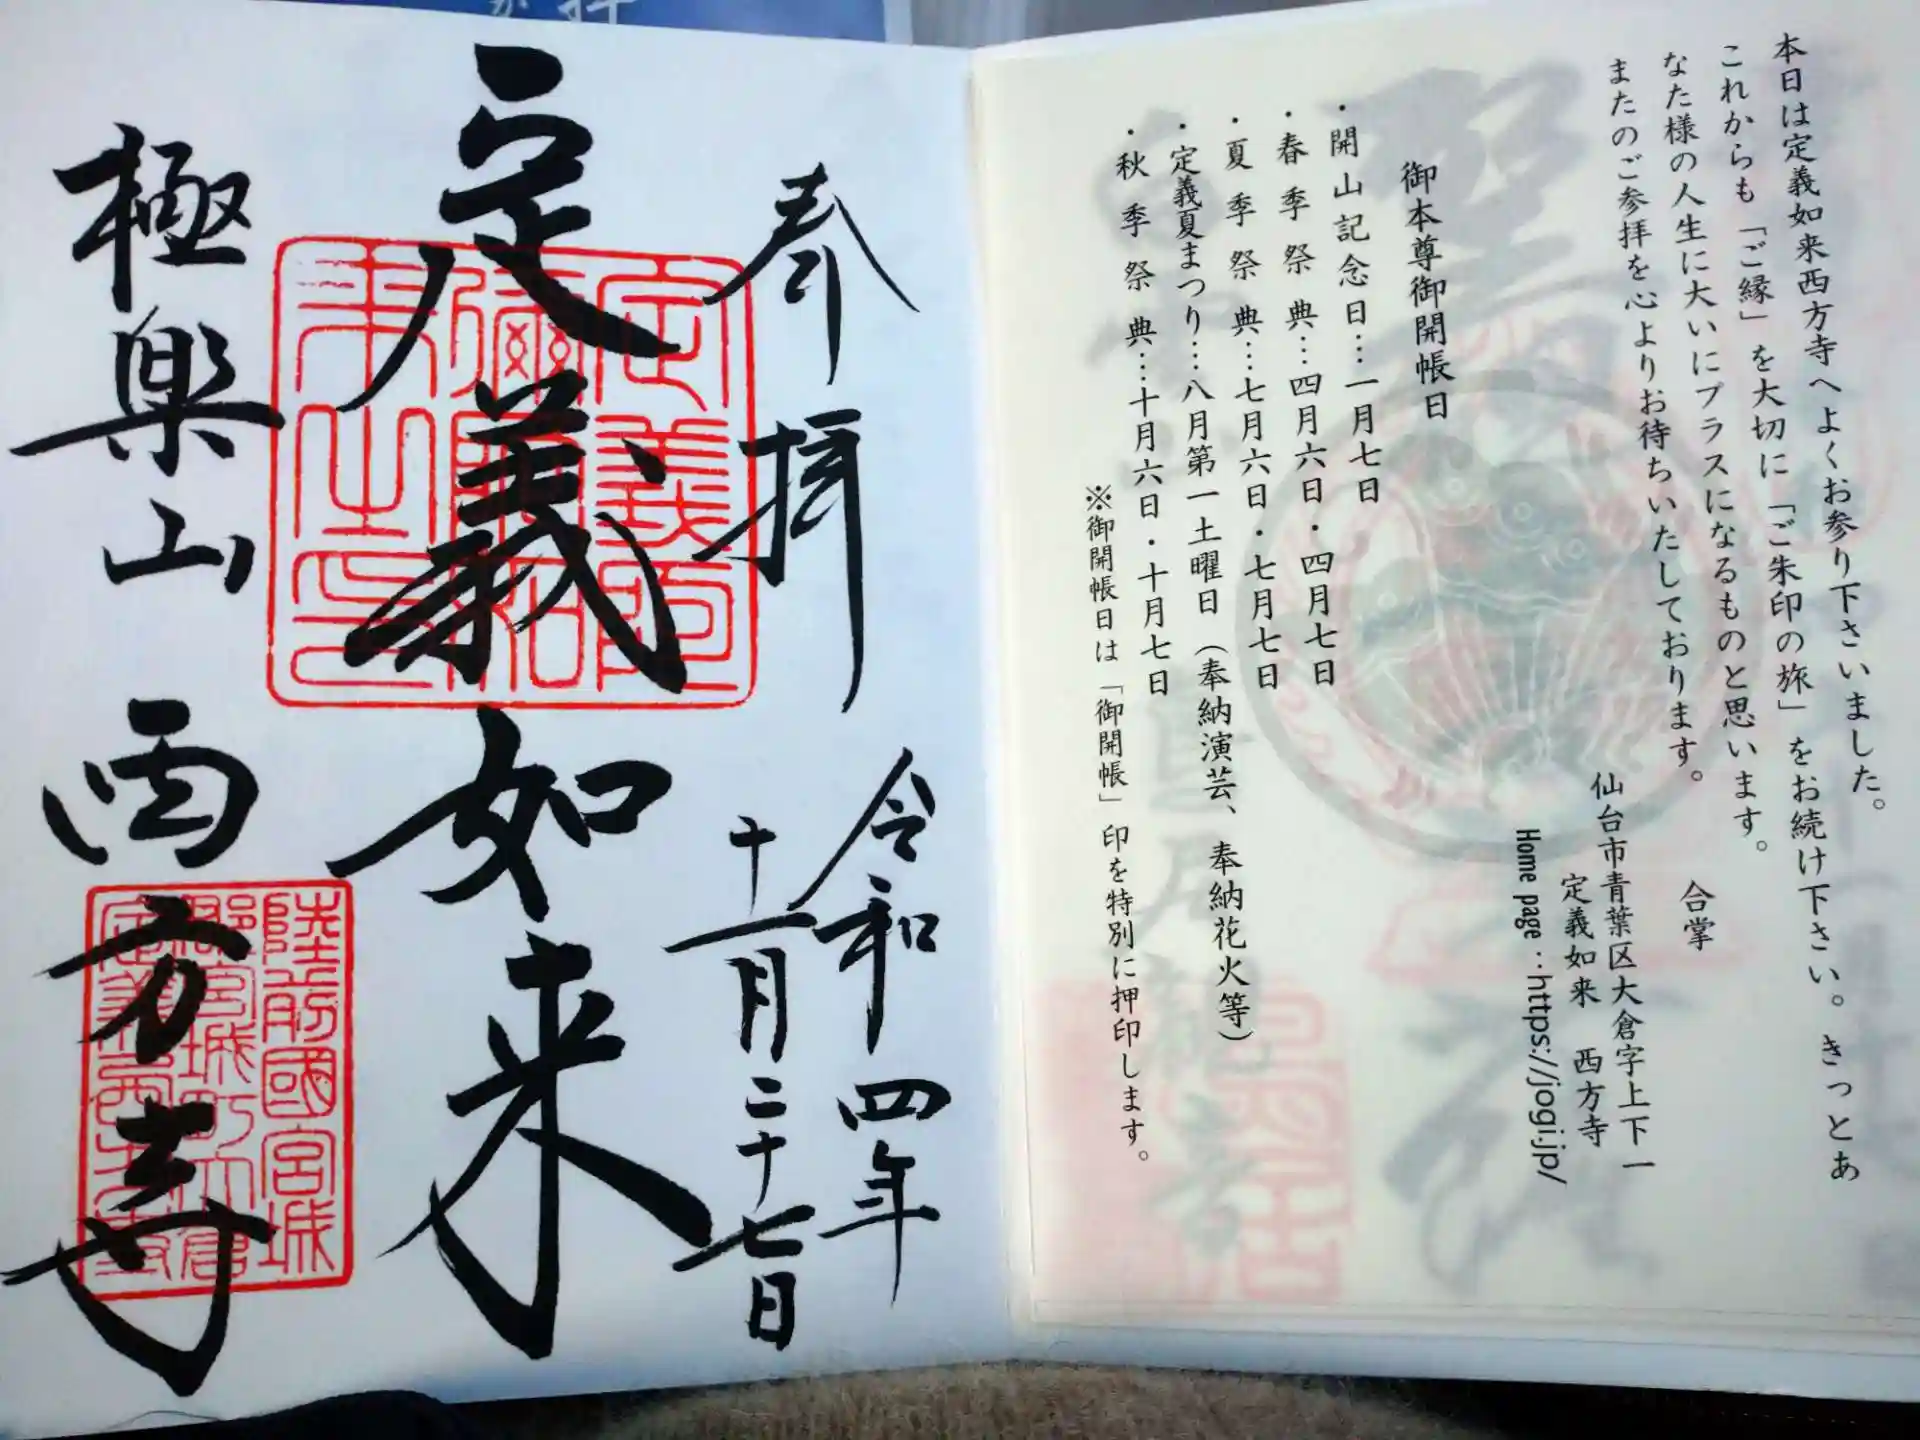 本日は定義如来西方寺へよくお参り下さいました。
これからも「ご縁」を大切に「ご朱印の旅」をお続け下さい。きっとあ
なた様の人生に大いにプラスになるものと思います。
またのご参拝を心よりお待ちいたしております。
合掌
仙台市青葉区大倉字上下一
定義如来 西方寺
Home page：https://jogi.jp/
御本尊御開帳日
・開山記念日…一月七日
・春季祭典…四月六日・四月七日
・夏季祭典…七月六日・七月七日
・定義夏まつり…八月第一土曜日（奉納演芸、奉納花火等）
・秋季祭典…十月六日・十月七日
※御開帳日は「御開帳」印を特別に押印します。
奉拝
令和四年
十一月二十七日
定義如来
極楽山 西方寺